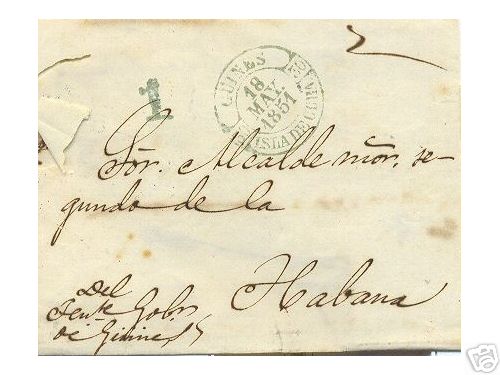 1
GUINES
18
MAY.
1851
ISLA DE CUBA
Sõr. Alcalde mõr. se-
gundo de la
Habana
Del
Tente Gobr
de Guines